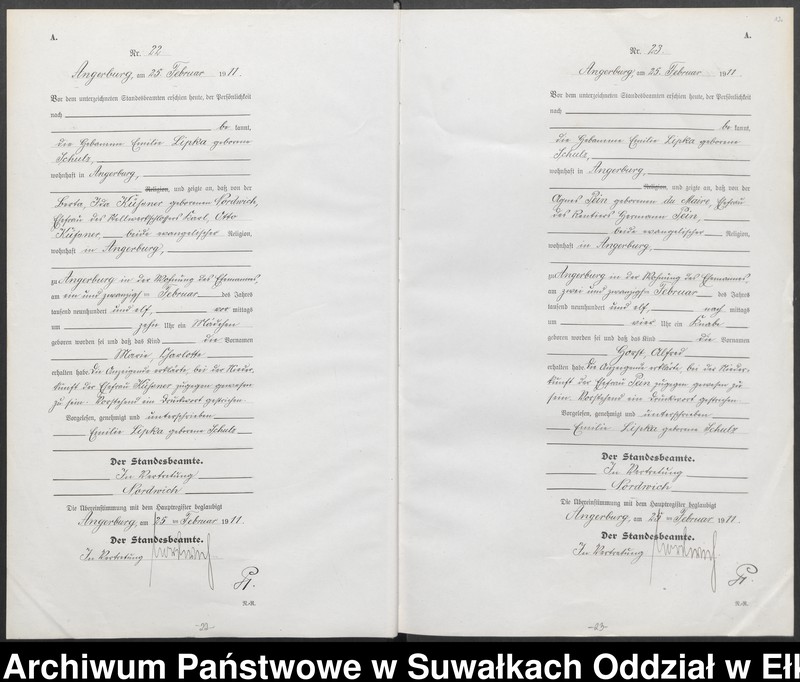 A.
Nr. 22
Angerburg, am 25. Februar 1911.
Vor dem unterzeichneten Standesbeamten erschien heute, der Persönlichkeit
nach
be kannt,
die Hebamme Emilie Lipka geborene
Schulz,
wohnhaft in Angerburg,
Religion, und zeigte an, daß von der
Berta, Ida Küßner geborenen Nordwich,
Ehefrau des Karl, Otto
Küßner, beide evangelischer Religion,
wohnhaft in Angerburg,
zu Angerburg in der Wohnung des Ehemannes,
am ein und zwanzigsten Februar des Jahres
tausend neunhundert und elf, vor mittags
um zehn Uhr ein Mädchen
geboren worden sei und daß das Kind die Vornamen
Marie, Charlotte
erhalten habe. Die Anzeigende erklärte, bei der Nieder-
kunft der Ehefrau Küßner zugegen gewesen
zu sein. Vorstehend ein Druckwort gestrichen
Vorgelesen, genehmigt und unterschrieben
Emilie Lipka geborene Schulz
Der Standesbeamte.
In Vertretung
Nordwich
Die Übereinstimmung mit dem Hauptregister beglaubigt
Angerburg, am 25ten Februar 1911.
Der Standesbeamte.
In Vertretung
N.-R.
-22-
12.
A.
Nr. 23
Angerburg, am 25. Februar 1911.
Vor dem unterzeichneten Standesbeamten erschien heute, der Persönlichkeit
nach
be kannt,
die Hebamme Emilie Lipka geborene
Schulz,
wohnhaft in Angerburg,
Religion, und zeigte an, daß von der
Agnes Pein geborenen du Maire, Ehefrau
des Rentiers Hermann Pein,
beide evangelischer Religion,
wohnhaft in Angerburg,
zu Angerburg in der Wohnung des Ehemannes,
am zwei und zwanzigsten Februar des Jahres
tausend neunhundert und elf, nach mittags
um vier Uhr ein Knabe
geboren worden sei und daß das Kind die Vornamen
Horst, Alfred
erhalten habe. Die Anzeigende erklärte, bei der Nieder-
kunft der Ehefrau Pein zugegen gewesen zu
sein. Vorstehend ein Druckwort gestrichen
Vorgelesen, genehmigt und unterschrieben
Emilie Lipka geborene Schulz
Der Standesbeamte.
In Vertretung
Nordwich
Die Übereinstimmung mit dem Hauptregister beglaubigt
Angerburg, am 25ten Februar 1911.
Der Standesbeamte.
In Vertretung
N.-R.
-23-
Archiwum Państwowe w Suwałkach Oddział w Ełk